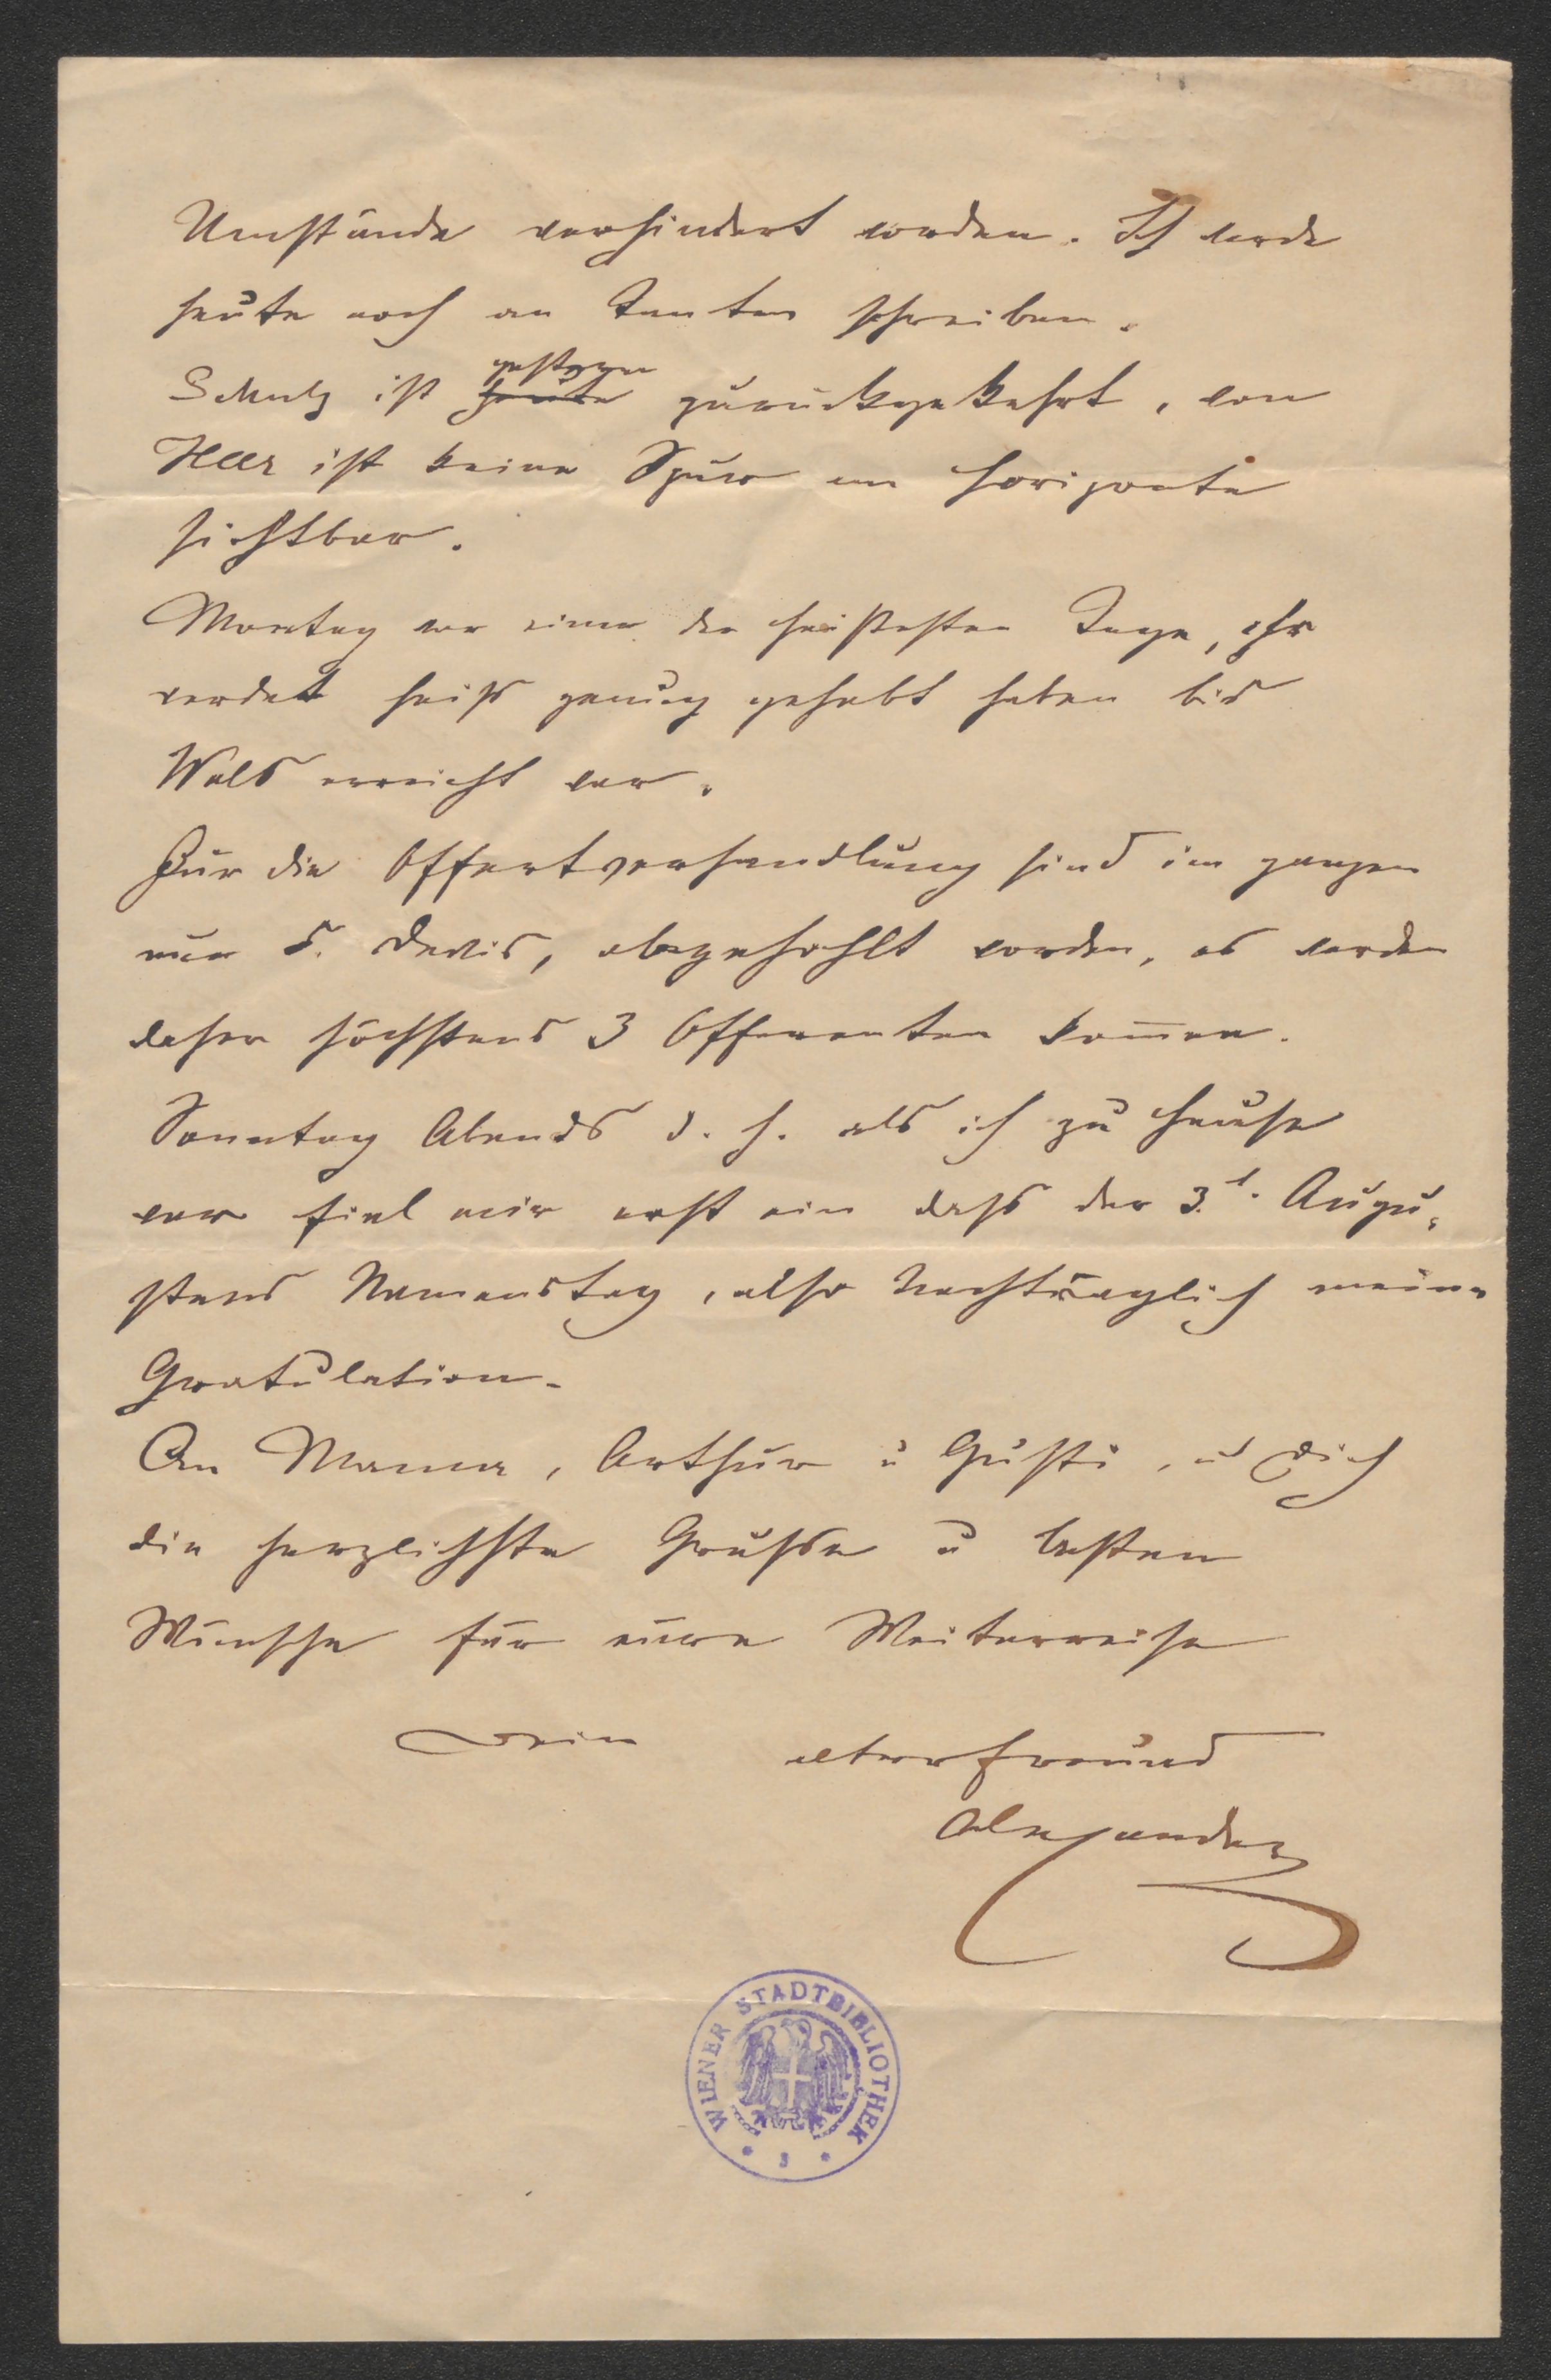 Umstände verhindert worden. Ich werde
heute noch an Tanten schreiben.
gestern
Schulz ist heute zurückgekehrt, von
Heer ist keine Spur am Horizonte
sichtbar.
Montag war einer der heißesten Tage, ihr
werdet heiß genug gehabt haben bis
Wels erreicht war.
Für die Offertverhandlung sind im ganzen
nur 5. Devis, abgehohlt worden, es werden
daher höchstens 3 Offerenten kom̅en.
Sonntag Abends d. h. als ich zu Hause
war fiel mir erst ein dass der 3t. Augu-
stens Namenstag, also nachträglich meine
Gratulation.
An Mama, Arthur u Gusti, u Dich
die herzlichste Grüsse u besten
Wünsche für eüre Weiterreise
Dein alter Freund
Alexander
WIENER STADTBIBLIOTHEK